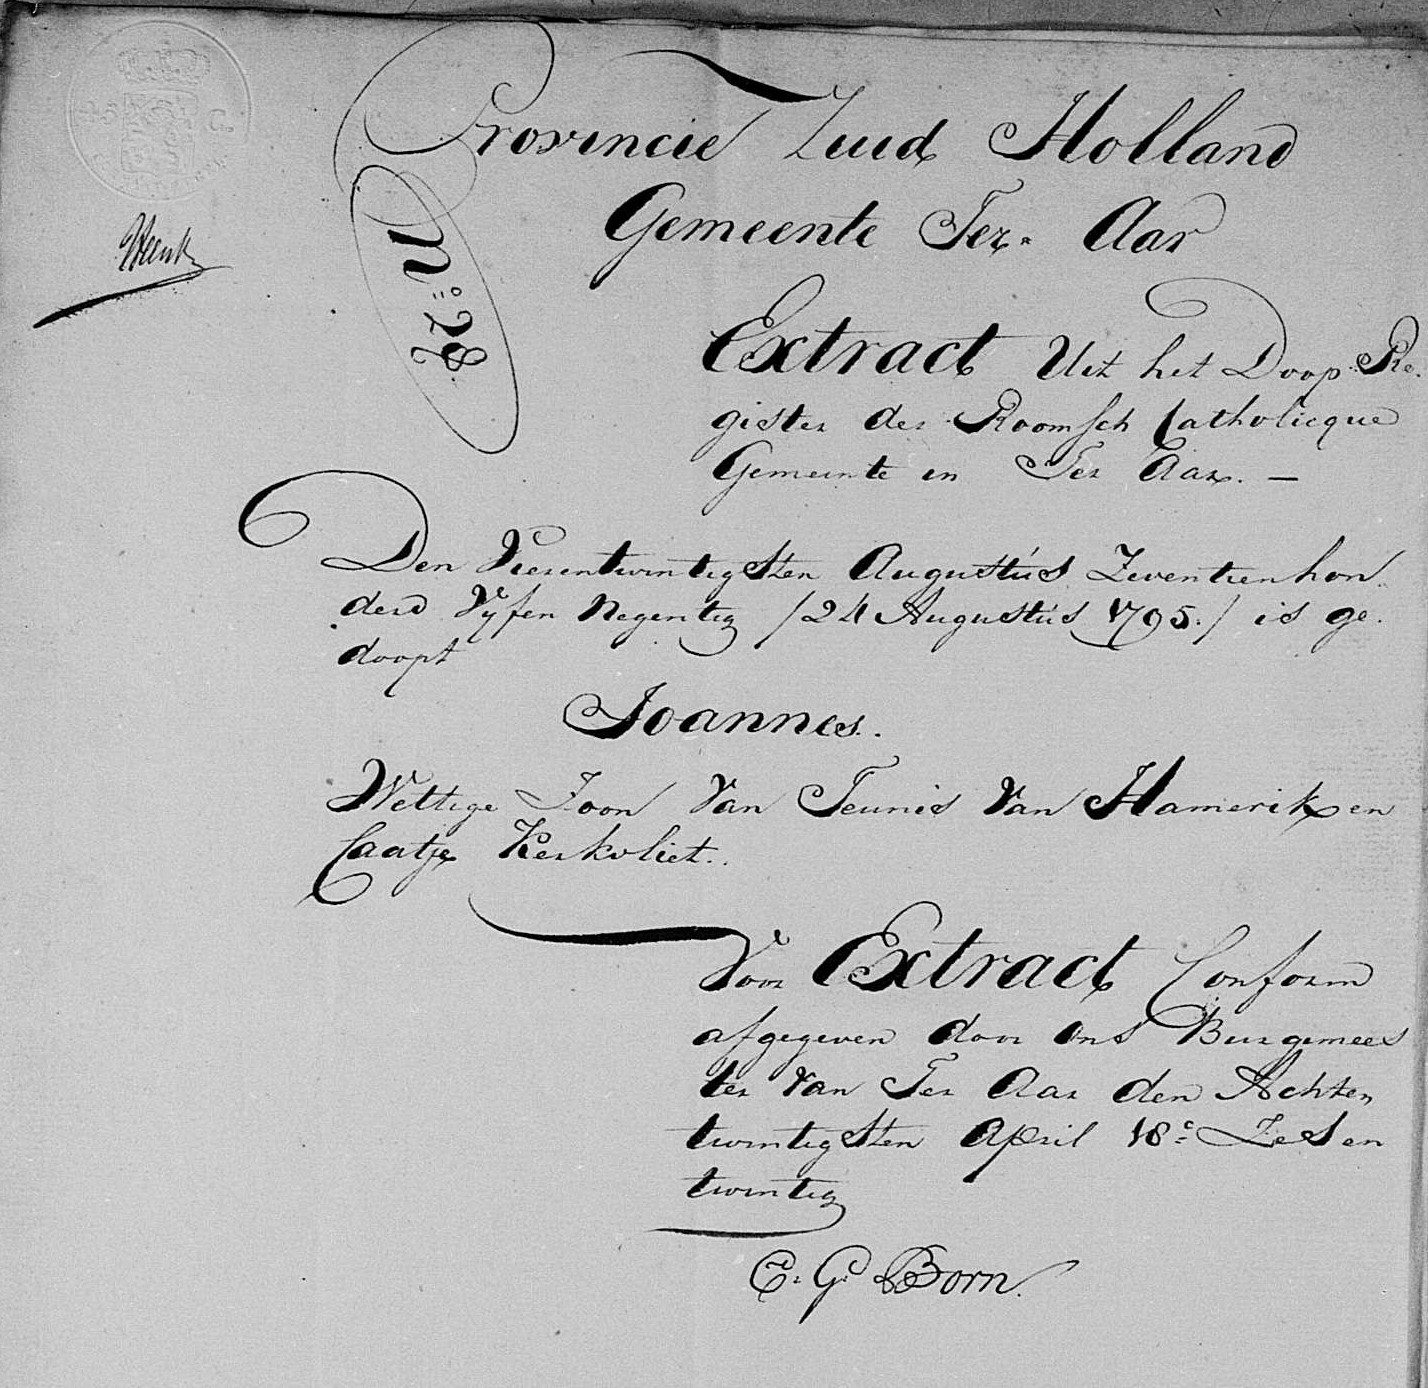 Provincie Zuid Holland
Gemeente Ter. Aar
N: 28
Extract Uit het Doop Re.
gister der Roomsch Catholicque
Gemeente in Ter Aar. —
Den Vierentwintigsten Augustus Zeventienhon
derd Vyfen Negentig /24 Augustus 1795./ is ge.
doopt
Joannes.
Wettige Zoon Van Teunis Van Hamerik en
Caatje Kerkvliet..
Voor Extract Conform
afgegeven door Ons Burgemees
ter Van Ter Aar den Achten
twintigsten April 18c Zes en
twintig
C. G. Born.